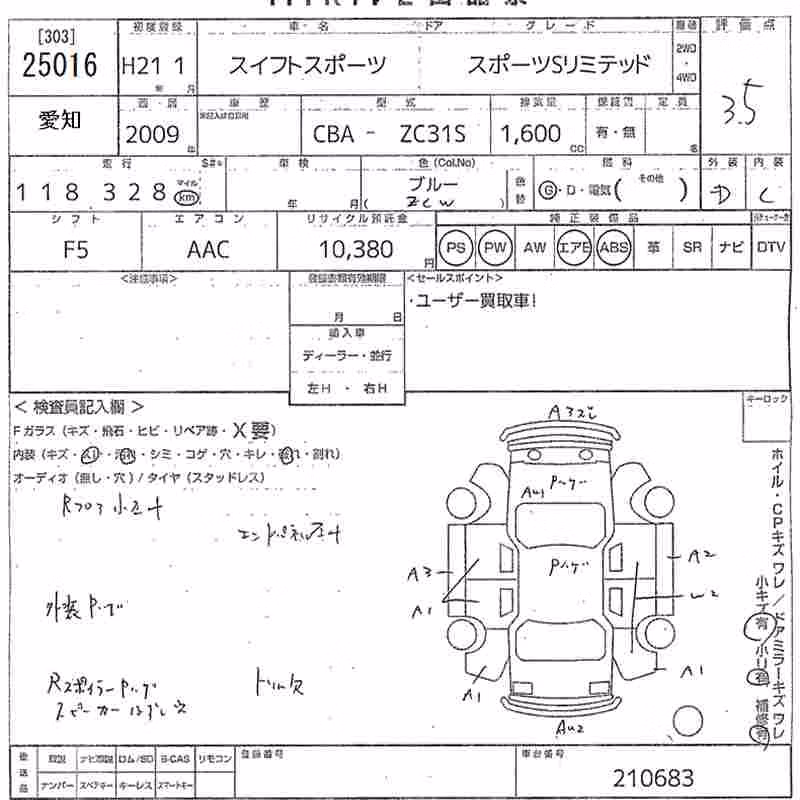 [303]
25016
初度登録 車・名 ドア グレード 駆動 評価点
H21 1 スイフトスポーツ スポーツSリミテッド 2WD・4WD 3.5
年 月
愛知
車歴 型式 排気量 定員
2009 CBA - ZC31S 1,600 有・無
年 CC 名
走行 車検 色(Col.No) 色替 燃料 外装 内装
118,328 マイル km 年 月 ブルー G・D・電気( その他 ) D C
( ZCW )
シフト エアコン リサイクル預託金 純正装備品
F5 AAC 10,380 円 PS PW AW エアB ABS 革 SR ナビ DTV
<注意事項> 登録書類有効期限 <セールスポイント>
・ユーザー買取車!
月 日
輸入車
ディーラー・並行
左H ・ 右H
< 検査員記入欄 > キーロック
Fガラス(キズ・飛石・ヒビ・リペア跡・X要)
内装(キズ・スレ・汚れ・シミ・コゲ・穴・キレ・割れ)
オーディオ(無し・穴)/タイヤ(スタッドレス)
Rフロア小サナ
エンドパネル
外装Pハゲ
Rスポイラー Pハゲ
スピーカー
A32
AU1 Pハゲ
Pハゲ
A3 A2
A1 W2
A1 A1
AU2
ホイル・CPキズ ワレ/ドアミラーキズ ワレ
小キズ有 小凹有 補修有
後送品 取説 ナビ取説 ロム/SD B-CAS リモコン 登録番号 車台番号
ナンバー スペアキー キーレス スマートキー 210683